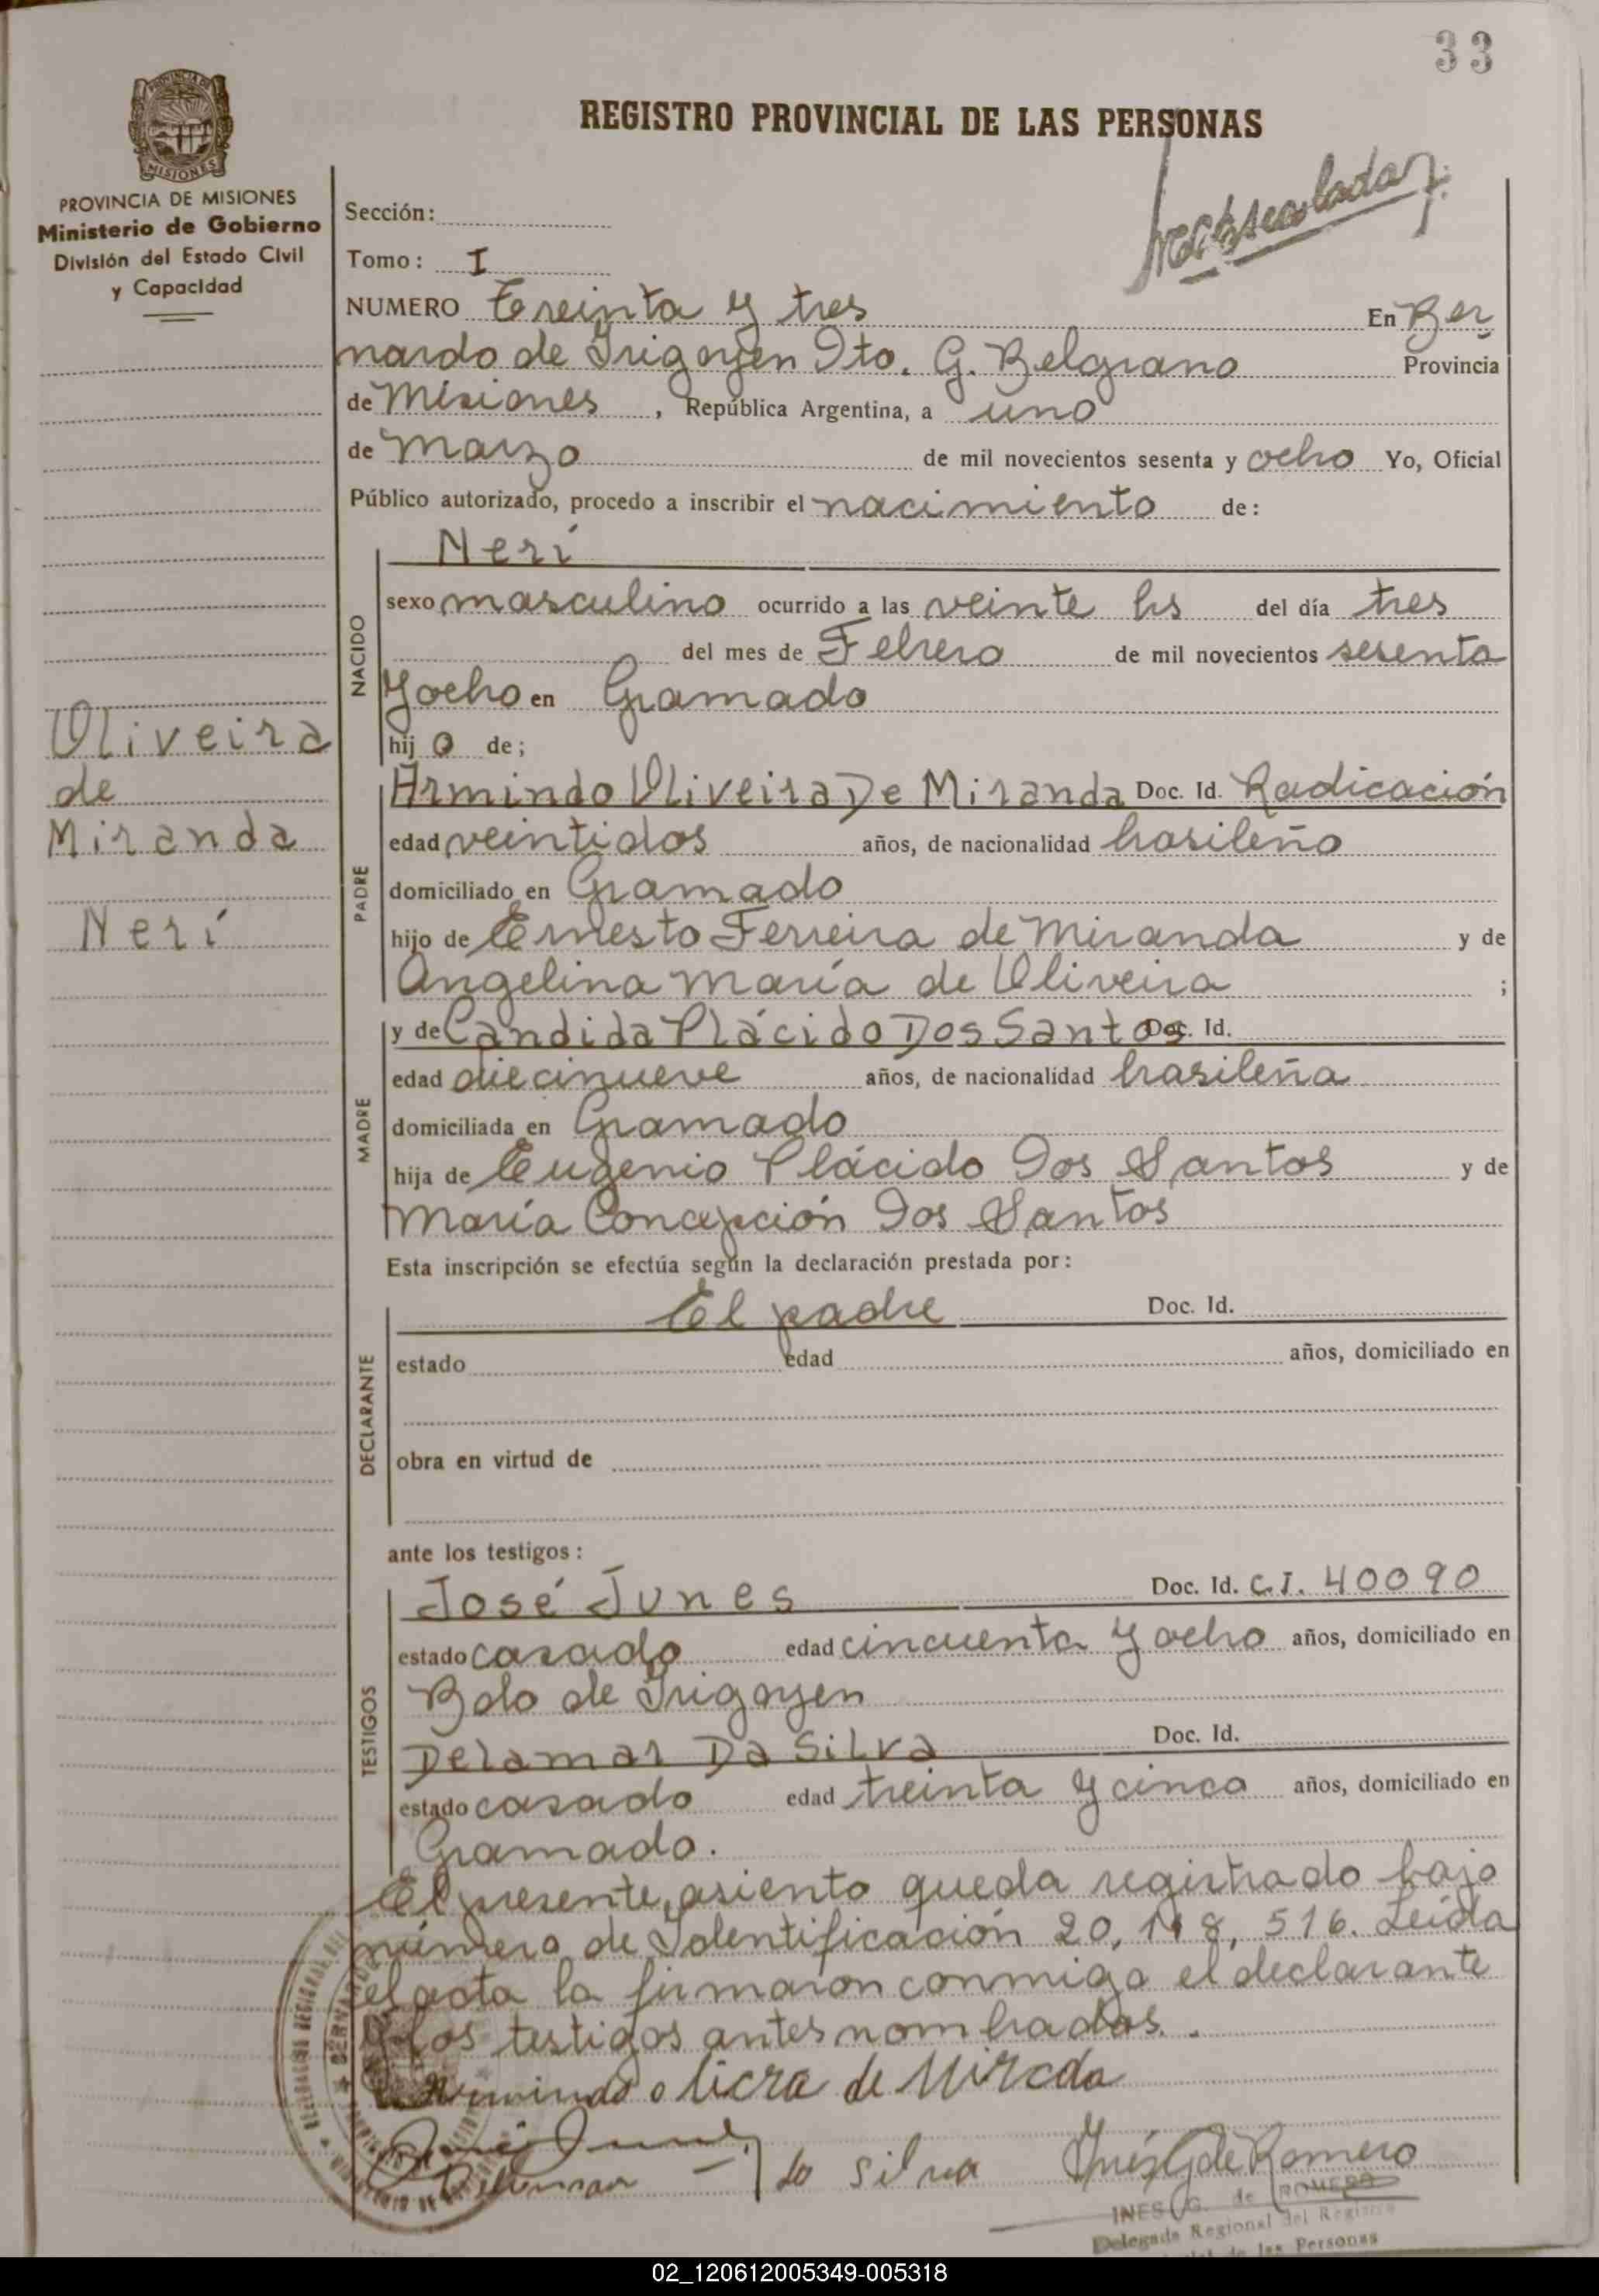 33
PROVINCIA DE MISIONES
REGISTRO PROVINCIAL DE LAS PERSONAS
PROVINCIA DE MISIONES
Ministerio de Gobierno
División del Estado Civil
y Capacidad
Sección:
Tomo: I
NUMERO Treinta y tres En Ber
nardo de Irigoyen Dto. G. Belgrano Provincia
de Misiones, República Argentina, a uno
de Marzo de mil novecientos sesenta y ocho Yo, Oficial
Público autorizado, procedo a inscribir el nacimiento de:
Nerí
NACIDO
sexo masculino ocurrido a las veinte hs del día tres
del mes de Febrero de mil novecientos sesenta
y ocho en Gramado
hijo de;
Oliveira
de
Miranda
Nerí
PADRE
Armindo Oliveira De Miranda Doc. Id. Radicación
edad veintidos años, de nacionalidad brasileño
domiciliado en Gramado
hijo de Ernesto Ferreira de Miranda y de
Angelina María de Oliveira ;
MADRE
y de Candida Plácido Dos Santos Doc. Id.
edad diecinueve años, de nacionalidad brasileña
domiciliada en Gramado
hija de Eugenio Plácido Dos Santos y de
María Concepción Dos Santos
Esta inscripción se efectúa según la declaración prestada por:
DECLARANTE
El padre Doc. Id.
estado edad años, domiciliado en
obra en virtud de
ante los testigos:
TESTIGOS
José Junes Doc. Id. C.I. 40090
estado casado edad cincuenta y ocho años, domiciliado en
Bdo de Irigoyen
Delamar Da Silva Doc. Id.
estado casado edad treinta y cinco años, domiciliado en
Gramado.
El presente asiento queda registrado bajo
número de Identificación 20,118,516. Leída
el acta la firmaron conmigo el declarante
y los testigos antes nombrados.
Armindo olicra de Mircda
da silva Inés G de Romero
INES G. de ROMERO
Delegada Regional del Registro
de las Personas
02_120612005349-005318